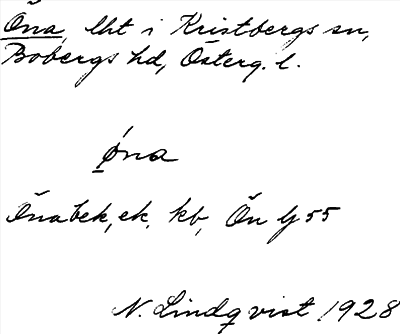 Öna, lht i Kristbergs sn,
Bobergs hd, Österg. l.
óna
Önabek, ek. kb, Ön G 55
N. Lindqvist 1928